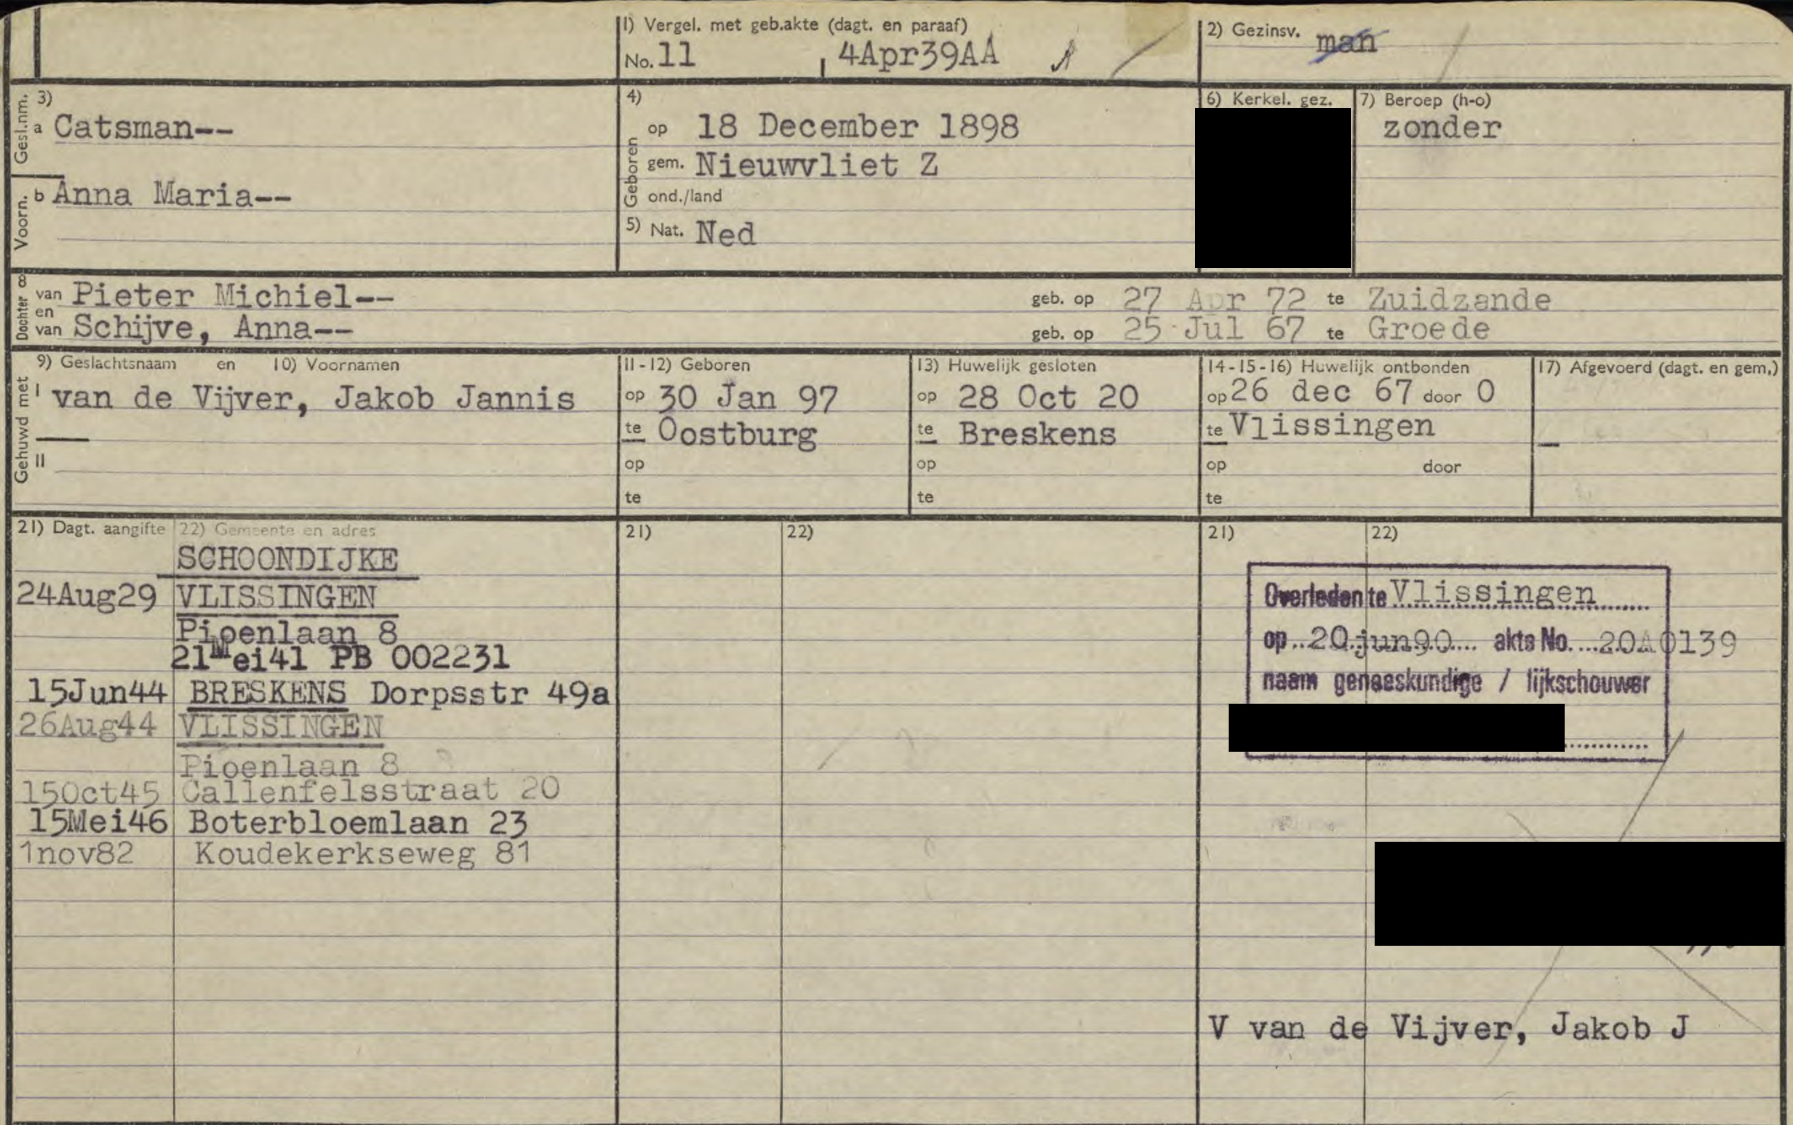 1) Vergel. met geb.akte (dagt. en paraaf)
No. 11 4Apr39AA
2) Gezinsv. man
3)
Gesl.nm. a Catsman--
Voorn. b Anna Maria--
4)
Geboren
op 18 December 1898
gem. Nieuwvliet Z
ond./land
5) Nat. Ned
6) Kerkel. gez.
7) Beroep (h-o)
zonder
8
Dochter
van Pieter Michiel-- geb. op 27 Apr 72 te Zuidzande
en
van Schijve, Anna-- geb. op 25 Jul 67 te Groede
Gehuwd met
9) Geslachtsnaam en 10) Voornamen
I van de Vijver, Jakob Jannis
II
11-12) Geboren
op 30 Jan 97
te Oostburg
op
te
13) Huwelijk gesloten
op 28 Oct 20
te Breskens
op
te
14-15-16) Huwelijk ontbonden
op 26 dec 67 door O
te Vlissingen
op door
te
17) Afgevoerd (dagt. en gem.)
21) Dagt. aangifte 22) Gemeente en adres
SCHOONDIJKE
24Aug29 VLISSINGEN
Pioenlaan 8
21Mei41 PB 002231
15Jun44 BRESKENS Dorpsstr 49a
26Aug44 VLISSINGEN
Pioenlaan 8
15Oct45 Callenfelsstraat 20
15Mei46 Boterbloemlaan 23
1nov82 Koudekerkseweg 81
21) 22)
21) 22)
Overleden te Vlissingen
op 20jun90 akte No. 20A0139
naam geneeskundige / lijkschouwer
V van de Vijver, Jakob J